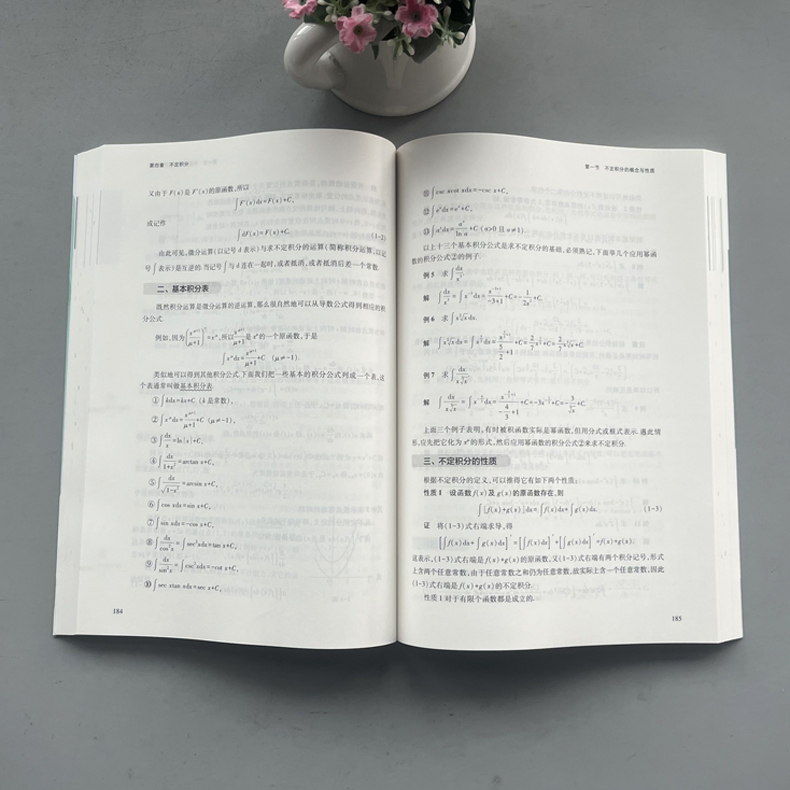 第四章 不定积分
又由于 F(x) 是 F'(x) 的原函数,所以
∫F'(x)dx=F(x)+C,
或记作
∫dF(x)=F(x)+C. (1-2)
由此可见,微分运算(以记号 d 表示)与求不定积分的运算(简称积分运算,以记
号∫表示)是互逆的.当记号∫与 d 连在一起时,或者抵消,或者抵消后差一个常数.
二、基本积分表
既然积分运算是微分运算的逆运算,那么很自然地可以从导数公式得到相应的积
分公式.
例如,因为(x^{μ+1}/(μ+1))'=x^μ,所以 x^{μ+1}/(μ+1) 是 x^μ 的一个原函数,于是
∫x^μ dx=x^{μ+1}/(μ+1)+C (μ≠-1).
类似地可以得到其他积分公式.下面我们把一些基本的积分公式列成一个表,这
个表通常叫做基本积分表.
① ∫kdx=kx+C (k 是常数),
② ∫x^μ dx=x^{μ+1}/(μ+1)+C (μ≠-1),
③ ∫dx/x=ln|x|+C,
④ ∫dx/(1+x²)=arctan x+C,
⑤ ∫dx/√(1-x²)=arcsin x+C,
⑥ ∫cos xdx=sin x+C,
⑦ ∫sin xdx=-cos x+C,
⑧ ∫dx/cos²x=∫sec²xdx=tan x+C,
⑨ ∫dx/sin²x=∫csc²xdx=-cot x+C,
⑩ ∫sec xtan xdx=sec x+C,
184
第一节 不定积分的概念与性质
⑪ ∫csc xcot xdx=-csc x+C,
⑫ ∫e^x dx=e^x+C,
⑬ ∫a^x dx=a^x/ln a+C (a>0 且 a≠1).
以上十三个基本积分公式是求不定积分的基础,必须熟记.下面举几个应用幂函
数的积分公式②的例子.
例 5 求∫dx/x³.
解 ∫dx/x³=∫x^{-3}dx=x^{-3+1}/(-3+1)+C=-1/(2x²)+C.
例 6 求∫x²√x dx.
解 ∫x²√x dx=∫x^{5/2}dx=x^{5/2+1}/(5/2+1)+C=2/7 x^{7/2}+C=2/7 x³√x+C.
例 7 求∫dx/(x∛x).
解 ∫dx/(x∛x)=∫x^{-4/3}dx=x^{-4/3+1}/(-4/3+1)+C=-3x^{-1/3}+C=-3/∛x+C.
上面三个例子表明,有时被积函数实际是幂函数,但用分式或根式表示.遇此情
形,应先把它化为 x^μ 的形式,然后应用幂函数的积分公式②来求不定积分.
三、不定积分的性质
根据不定积分的定义,可以推得它有如下两个性质:
性质 1 设函数 f(x) 及 g(x) 的原函数存在,则
∫[f(x)+g(x)]dx=∫f(x)dx+∫g(x)dx. (1-3)
证 将(1-3)式右端求导,得
[∫f(x)dx+∫g(x)dx]'=[∫f(x)dx]'+[∫g(x)dx]'=f(x)+g(x).
这表示,(1-3)式右端是 f(x)+g(x) 的原函数,又(1-3)式右端有两个积分记号,形式
上含两个任意常数,由于任意常数之和仍为任意常数,故实际上含一个任意常数,因此
(1-3)式右端是 f(x)+g(x) 的不定积分.
性质 1 对于有限个函数都是成立的.
185